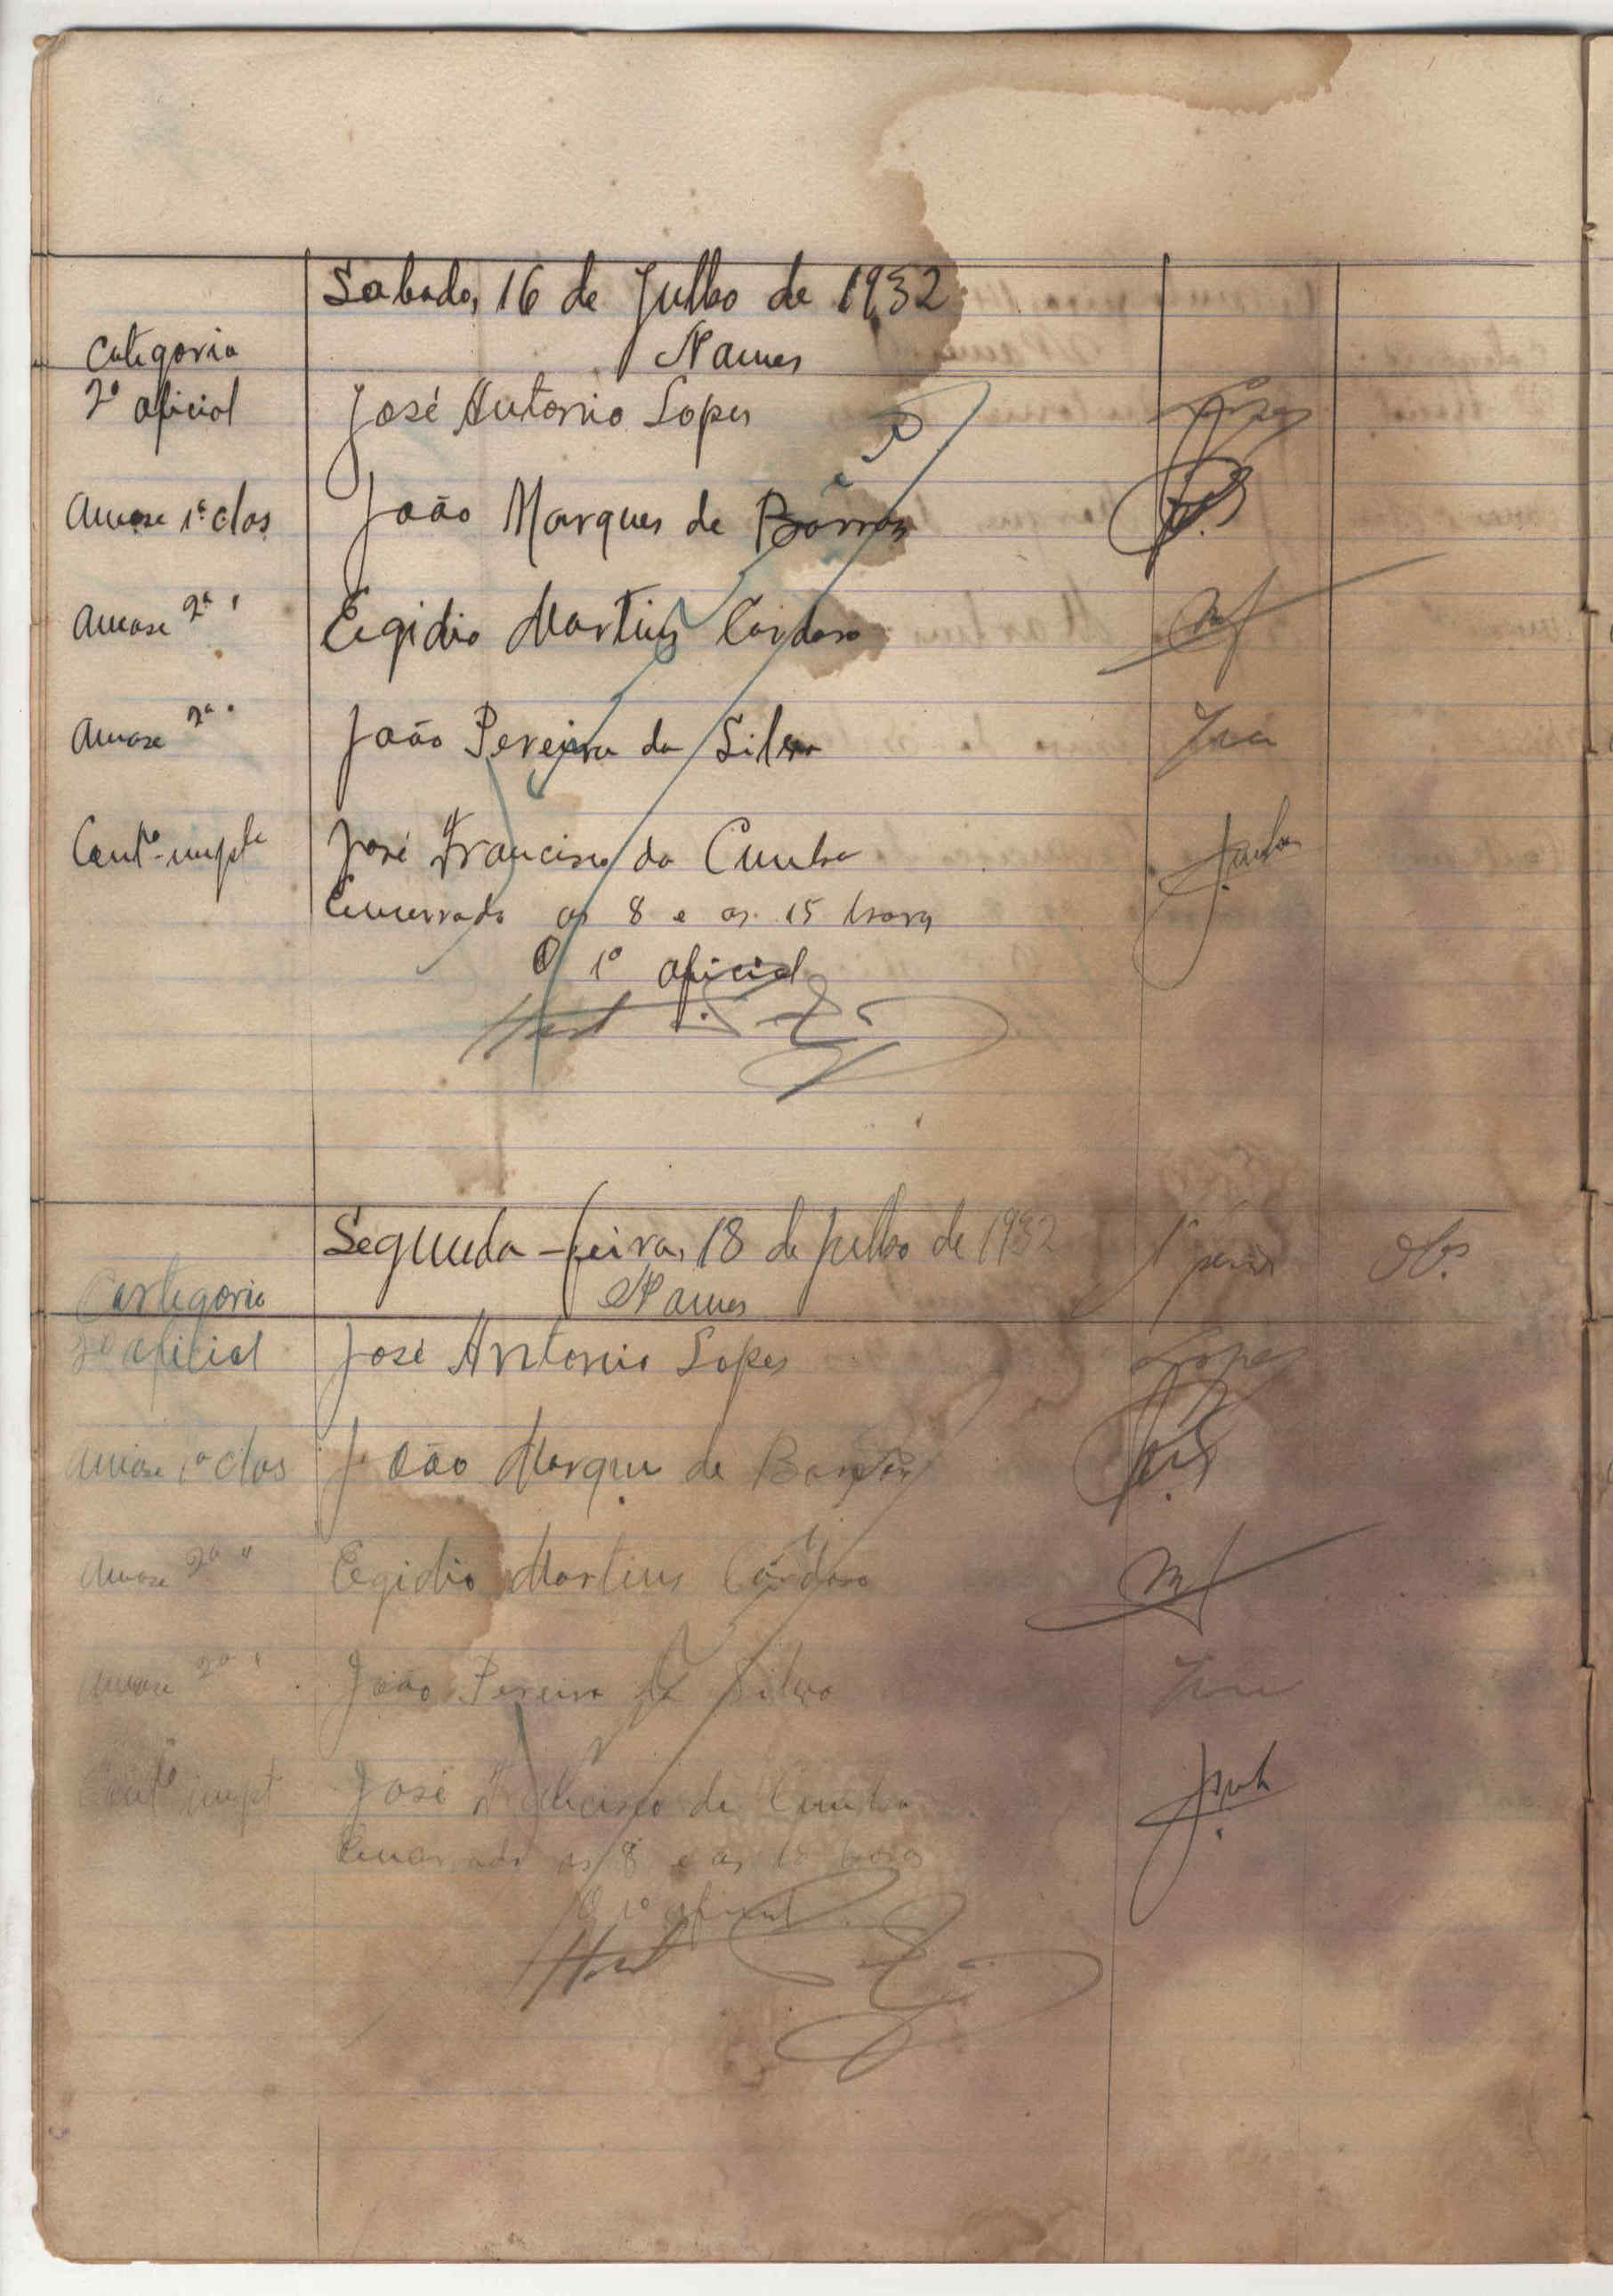 Sabado, 16 de Julho de 1932
Categoria Nomes
2º oficial José Antonio Lopes Lopes
1ª clas João Marques de Barros
2ª " Egidio Martins Cardoso
2ª " João Pereira da Silva
José Francisco da Cunha
Encerrado as 8 e as 15 horas
O 1º oficial
Segunda-feira, 18 de Julho de 1932 1º Obs
Cartegoria Nomes
2º oficial José Antonio Lopes Lopes
1ª clas João Marques de Barros
2ª " Egidio Martins Cardoso
2ª " João Pereira da Silva
José Francisco da Cunha
Encerrado as 8 e as horas
O 1º oficial